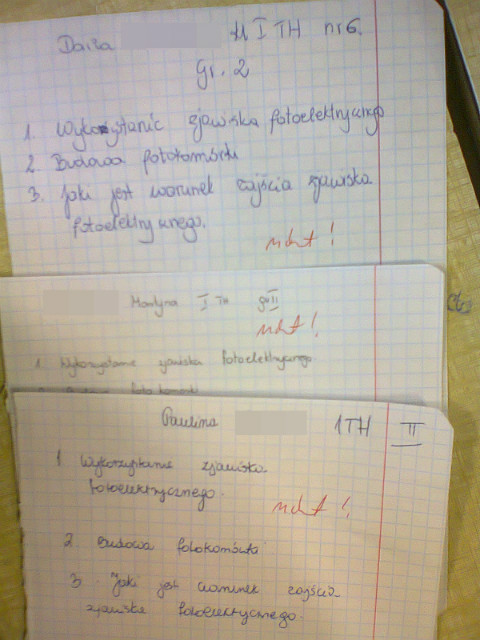 Daria II I TH nr 6.
gr. 2
1. Wykorzystanie zjawiska fotoelektrycznego
2. Budowa fotokomórki
3. Jaki jest warunek zajścia zjawiska
fotoelektrycznego.
ndst!
Martyna I TH gr II
ndst!
1 Wykorzystanie zjawiska fotoelektrycznego
Paulina 1TH II
1 Wykorzystanie zjawiska
fotoelektrycznego.
ndst!
2. Budowa fotokomórki
3. Jaki jest warunek zajścia
zjawiska fotoelektrycznego.